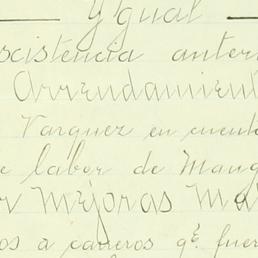 Ygual
scistencia anter
Arrendamient
Varquez en cuenta
e labor de Mang
r Mejoras Ma
os a carreros qe. fuer